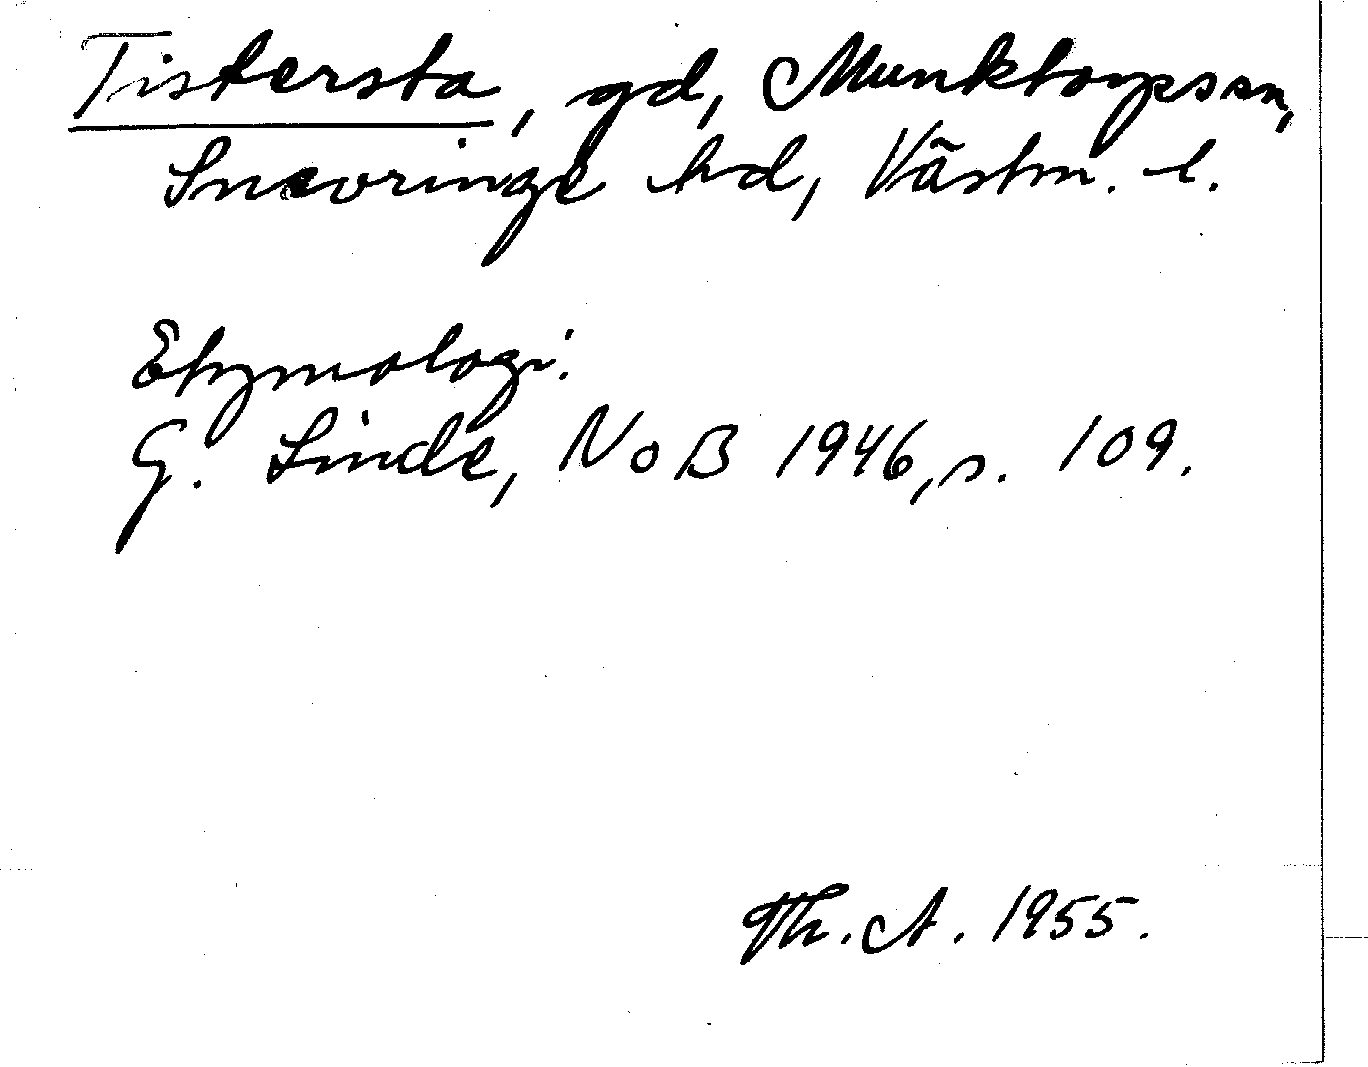 Tistersta, gd, Munktorps sn,
Snevringe hd, Västm. l.
Etymologi:
G. Linde, NoB 1946, s. 109.
Th. A. 1955.